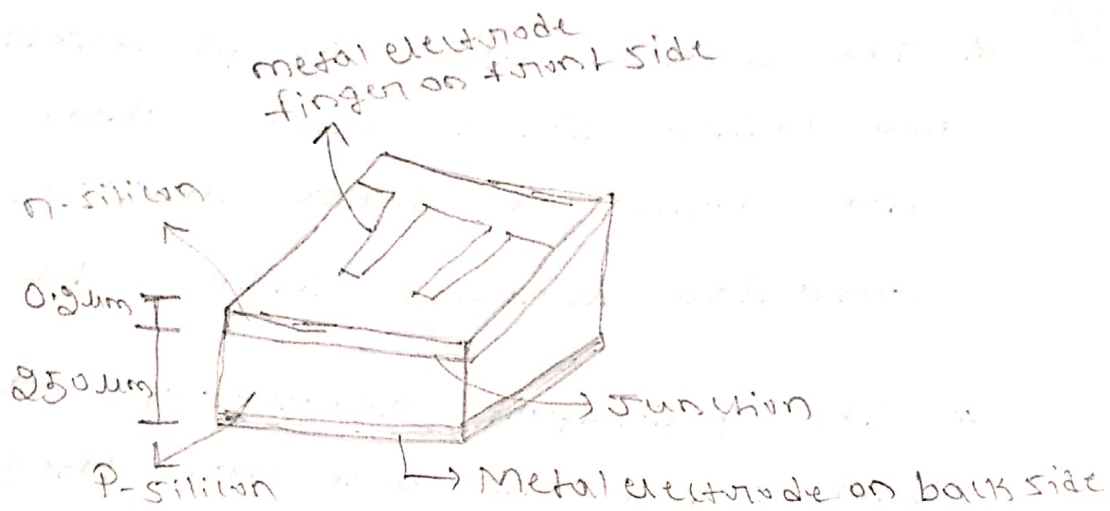 metal electrode
finger on front side
n-silicon
0.2um
250um
Junction
P-silicon
Metal electrode on back side